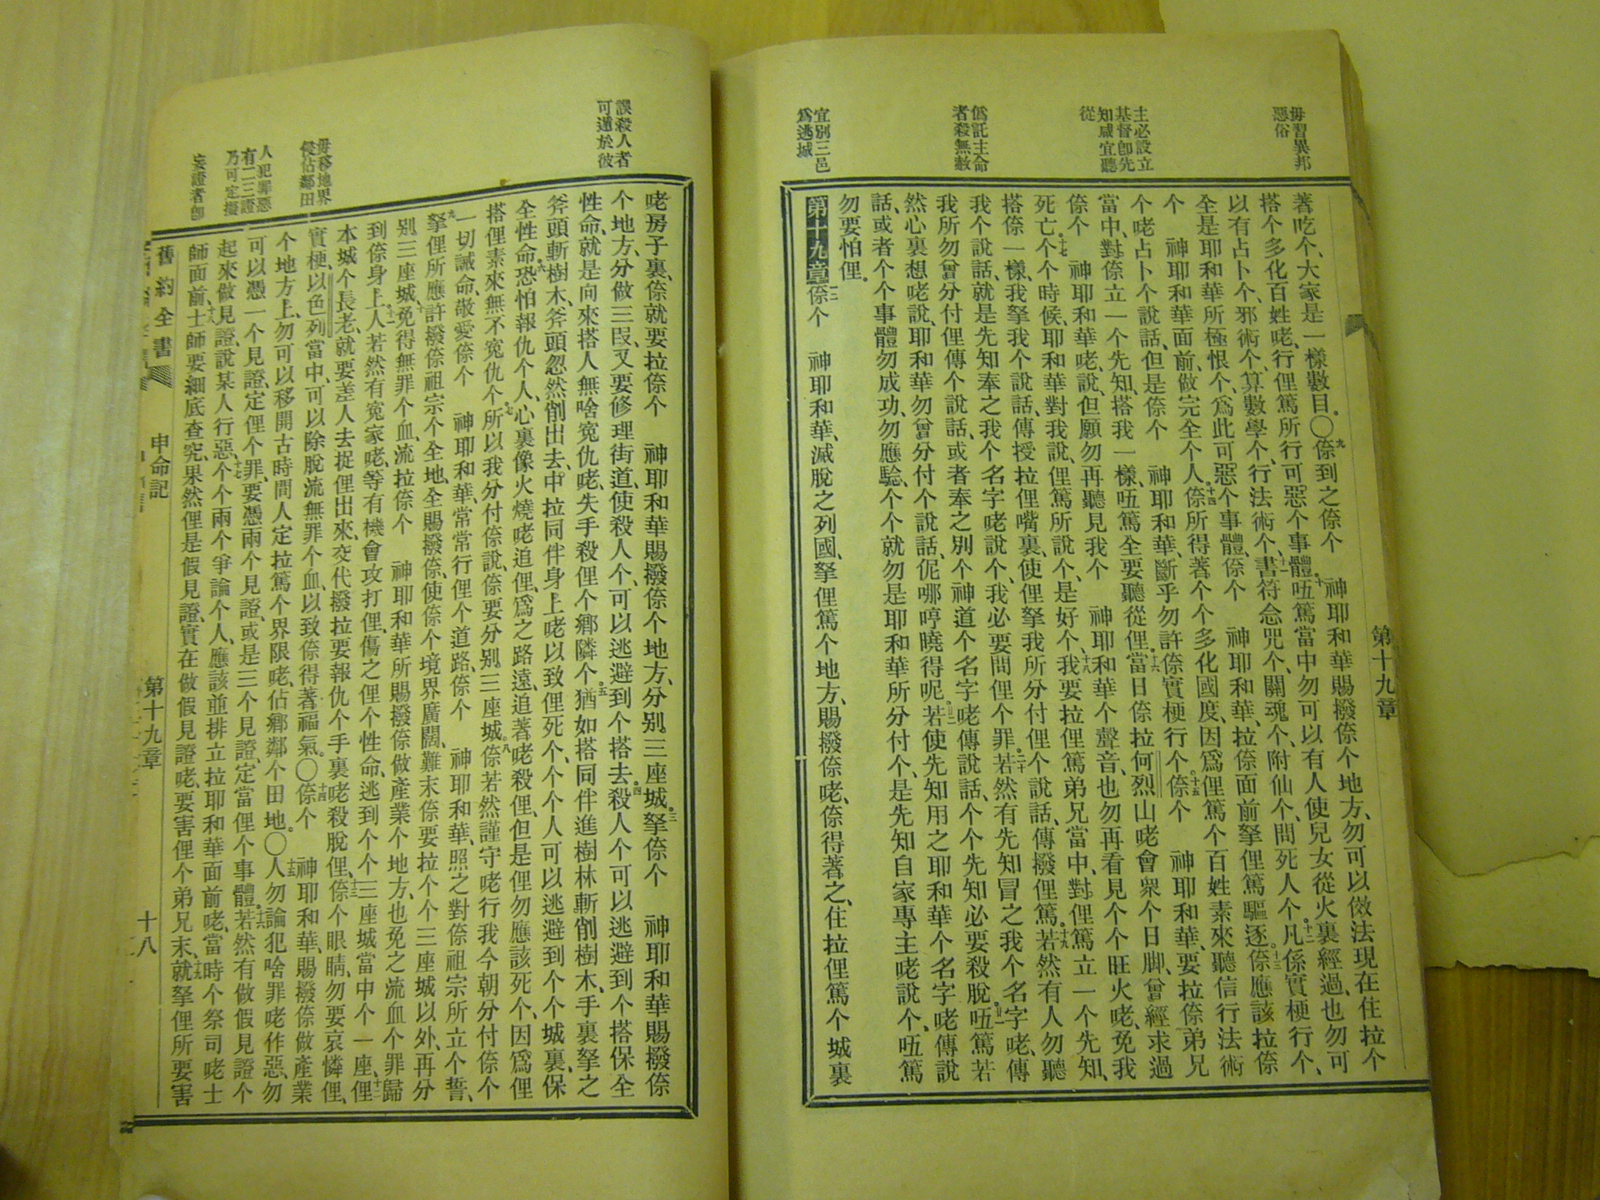 毋習異邦
惡俗
主必設立
基督卽先
知咸宜聽
從
僞託主命
者殺無赦
宜別三邑
爲逃城
第十九章
著吃个、大家是一樣數目。〇九倷到之倷个　神耶和華賜撥倷个地方、勿可以傚法現在住拉个
搭个多化百姓咾、行俚篤所行可惡个事體。十㕶篤當中勿可以有人使兒女從火裏經過、也勿可
以有占卜个、邪術个、算數學个、行法術个、十一書符念咒个、關魂个、附仙个、問死人个。十二凡係實梗行个、
全是耶和華所極恨个、爲此可惡个事體、倷个　神耶和華、拉倷面前拏俚篤驅逐。十三倷應該拉倷
个　神耶和華面前、做完全个人。十四倷所得著个个多化國度、因爲俚篤个百姓素來聽信行法術
个咾占卜个說話、但是倷个　神耶和華、斷乎勿許倷實梗行个。十五倷个　神耶和華、要拉倷弟兄
當中、對倷立一个先知、搭我一樣、㕶篤全要聽從俚。十六當日倷拉何烈山咾會衆个日脚、曾經求過
倷个　神耶和華咾、說、但願勿再聽見我个　神耶和華个聲音、也勿再看見个个旺火咾、免我
死亡。十七个个時候、耶和華對我說、俚篤所說个、是好个。十八我要拉俚篤弟兄當中、對俚篤立一个先知、
搭倷一樣、我拏我个說話、傳授拉俚嘴裏、使俚拏我所分付俚个說話、傳撥俚篤。十九若然有人勿聽
我个說話、就是先知奉之我个名字咾說个、我必要問俚个罪。二十若然有先知冒之我个名字咾、傳
我所勿曾分付俚傳个說話、或者奉之別个神道个名字咾傳說話、个个先知必要殺脫。二一㕶篤若
然心裏想咾說、耶和華勿曾分付个說話、伲哪哼曉得呢。二二若使先知用之耶和華个名字咾傳說
話、或者个个事體勿成功、勿應驗、个个就勿是耶和華所分付个、是先知自家專主咾說个、㕶篤
勿要怕俚。
第十九章一二倷个　神耶和華、滅脫之列國、拏俚篤个地方、賜撥倷咾、倷得著之、住拉俚篤个城裏
誤殺人者
可遁於彼
毋移地界
侵佔鄰田
人犯罪惡
有二三證
乃可定擬
妄證者卽
咾房子裏、倷就要拉倷个　神耶和華賜撥倷个地方、分別三座城。三拏倷个　神耶和華賜撥倷
个地方、分做三叚、又要修理街道、使殺人个、可以逃避到个搭去。四殺人个可以逃避到个搭保全
性命、就是向來搭人無啥寃仇咾失手殺俚个鄉隣个。五猶如搭同伴進樹林斬樹木、手裏拏之
斧頭斬樹木、斧頭忽然削出去、中拉同伴身上咾、以致俚死个、个个人可以逃避到个个城裏、保
全性命。六恐怕報仇个人、心裏像火燒咾追俚、爲之路遠、追著咾殺俚、但是俚勿應該死个、因爲俚
搭俚素來無不寃仇个。七所以我分付倷說、倷要分別三座城。八倷若然謹守咾行我今朝分付倷个
一切誡命、敬愛倷个　神耶和華、常常行俚个道路、倷个　神耶和華、照之對倷祖宗所立个誓、
九拏俚所應許撥倷祖宗个全地、全賜撥倷、使倷个境界廣闊、難末倷要拉个个三座城以外、再分
別三座城、十免得無罪个血、流拉倷个　神耶和華所賜撥倷做產業个地方、也免之流血个罪歸
到倷身上。十一人若然有寃家咾、等有機會攻打俚、傷之俚个性命、逃到个个三座城當中个一座、十二俚
本城个長老、就要差人去捉俚出來、交代撥拉要報仇个手裏咾殺脫俚。十三倷个眼睛、勿要哀憐俚、
實梗、以色列當中、可以除脫流無罪个血、以致倷得著福氣。〇十四倷个　神耶和華、賜撥倷做產業
个地方上、勿可以移開古時間人定拉篤个界限咾、佔鄉鄰个田地。〇十五人勿論犯啥罪咾作惡、勿
可以憑一个見證、定俚个罪、要憑兩个見證、或是三个見證、定當俚个事體。十六若然有做假見證个
起來做見證、說某人行惡个、十七个个兩个爭論个人、應該並排立拉耶和華面前咾、當時个祭司咾士
師面前、十八士師要細底查究、果然俚是假見證、實在做假見證咾、要害俚个弟兄末、十九就拏俚所要害
舊約全書
申命記
第十九章
十八